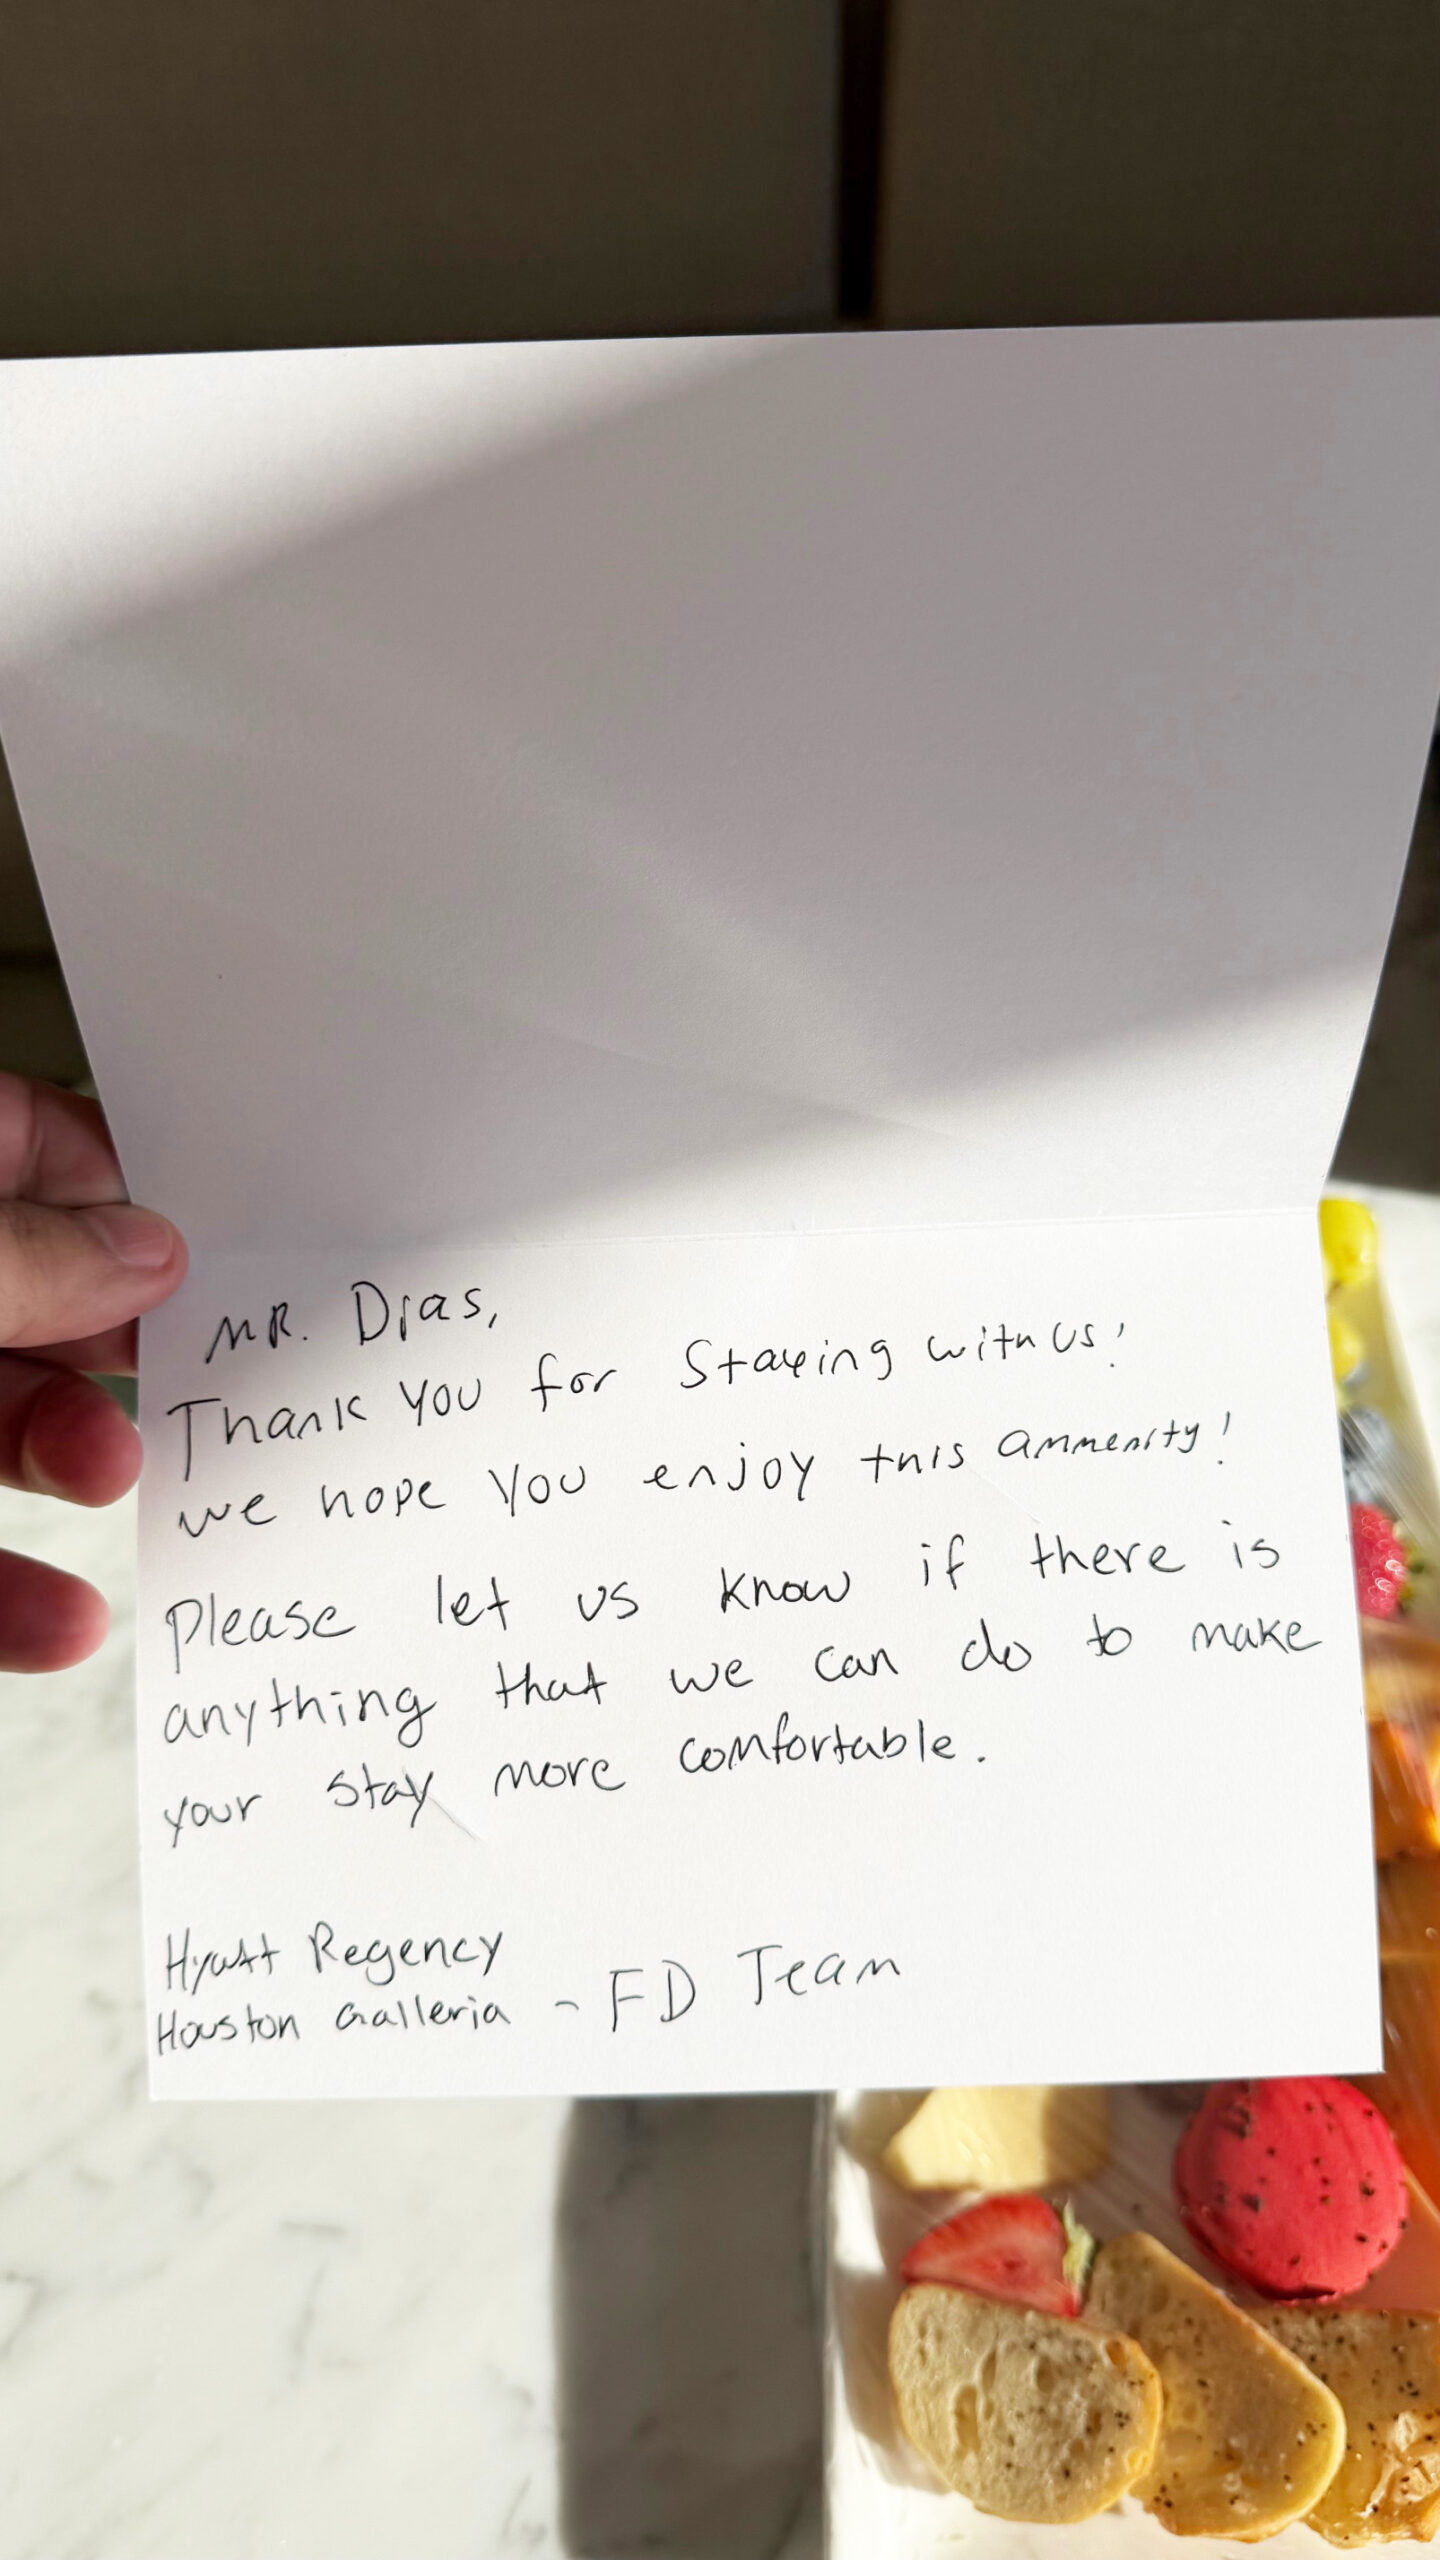 MR. Dias,
Thank you for Staying with us!
we hope you enjoy this ammenity!
Please let us know if there is
anything that we can do to make
your stay more comfortable.
Hyatt Regency
Houston Galleria - FD Team